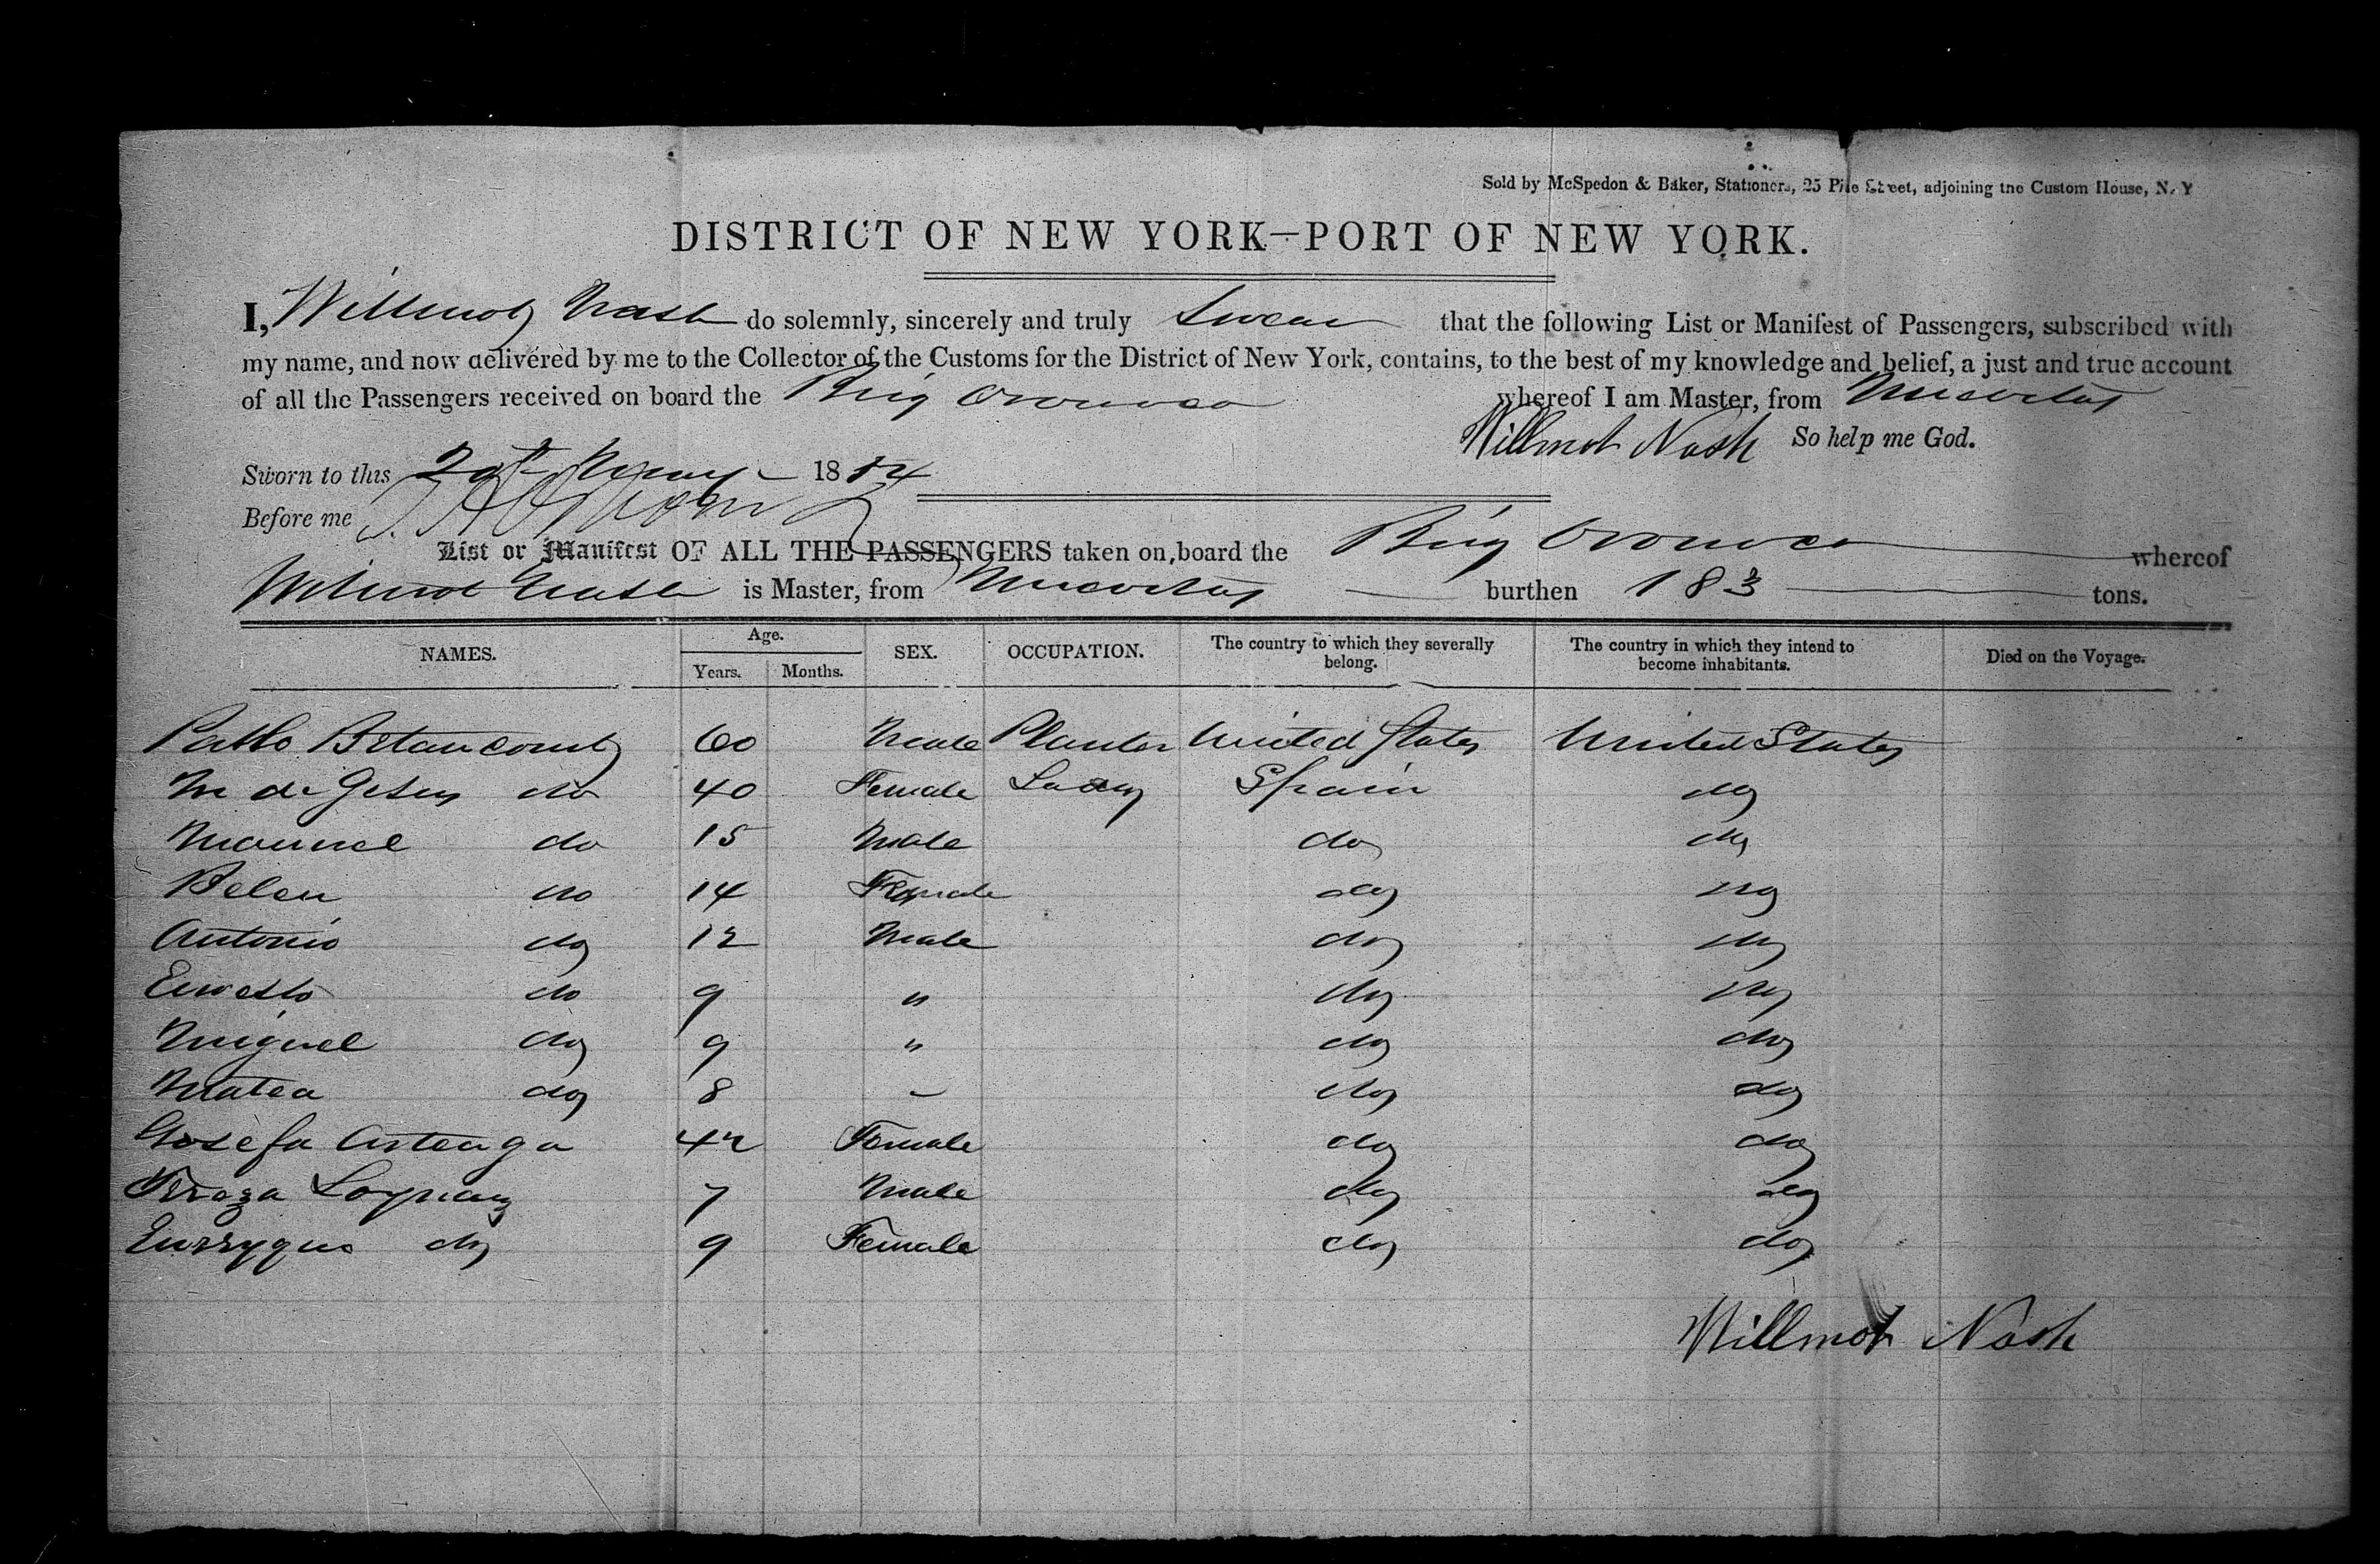 Sold by McSpedon & Baker, Stationers, 25 Pine Street, adjoining the Custom House, N. Y
DISTRICT OF NEW YORK—PORT OF NEW YORK.
I, Willmot Nash do solemnly, sincerely and truly Swear that the following List or Manifest of Passengers, subscribed with
my name, and now delivered by me to the Collector of the Customs for the District of New York, contains, to the best of my knowledge and belief, a just and true account
of all the Passengers received on board the Brig Oronoco whereof I am Master, from Nuevitas
Willmot Nash So help me God.
Sworn to this 20th 18
Before me
List or Manifest OF ALL THE PASSENGERS taken on board the Brig Oronoco whereof
Wilmot Nash is Master, from Nuevitas burthen 183 tons.
NAMES. Age. Years. Months. SEX. OCCUPATION. The country to which they severally belong. The country in which they intend to become inhabitants. Died on the Voyage.
Pablo Betancourt 60 Male Planter United States United States
M de Gesus do 40 Female Lady Spain do
Manuel do 15 Male do do
Belen do 14 Female do do
Antonio do 12 Male do do
Ernesto do 9 " do do
Miguel do 9 " do do
Matea do 8 " do do
Gosefa Arteaga 42 Female do do
Teresa Loynaz 7 Male do do
do 9 Female do do
Willmot Nash